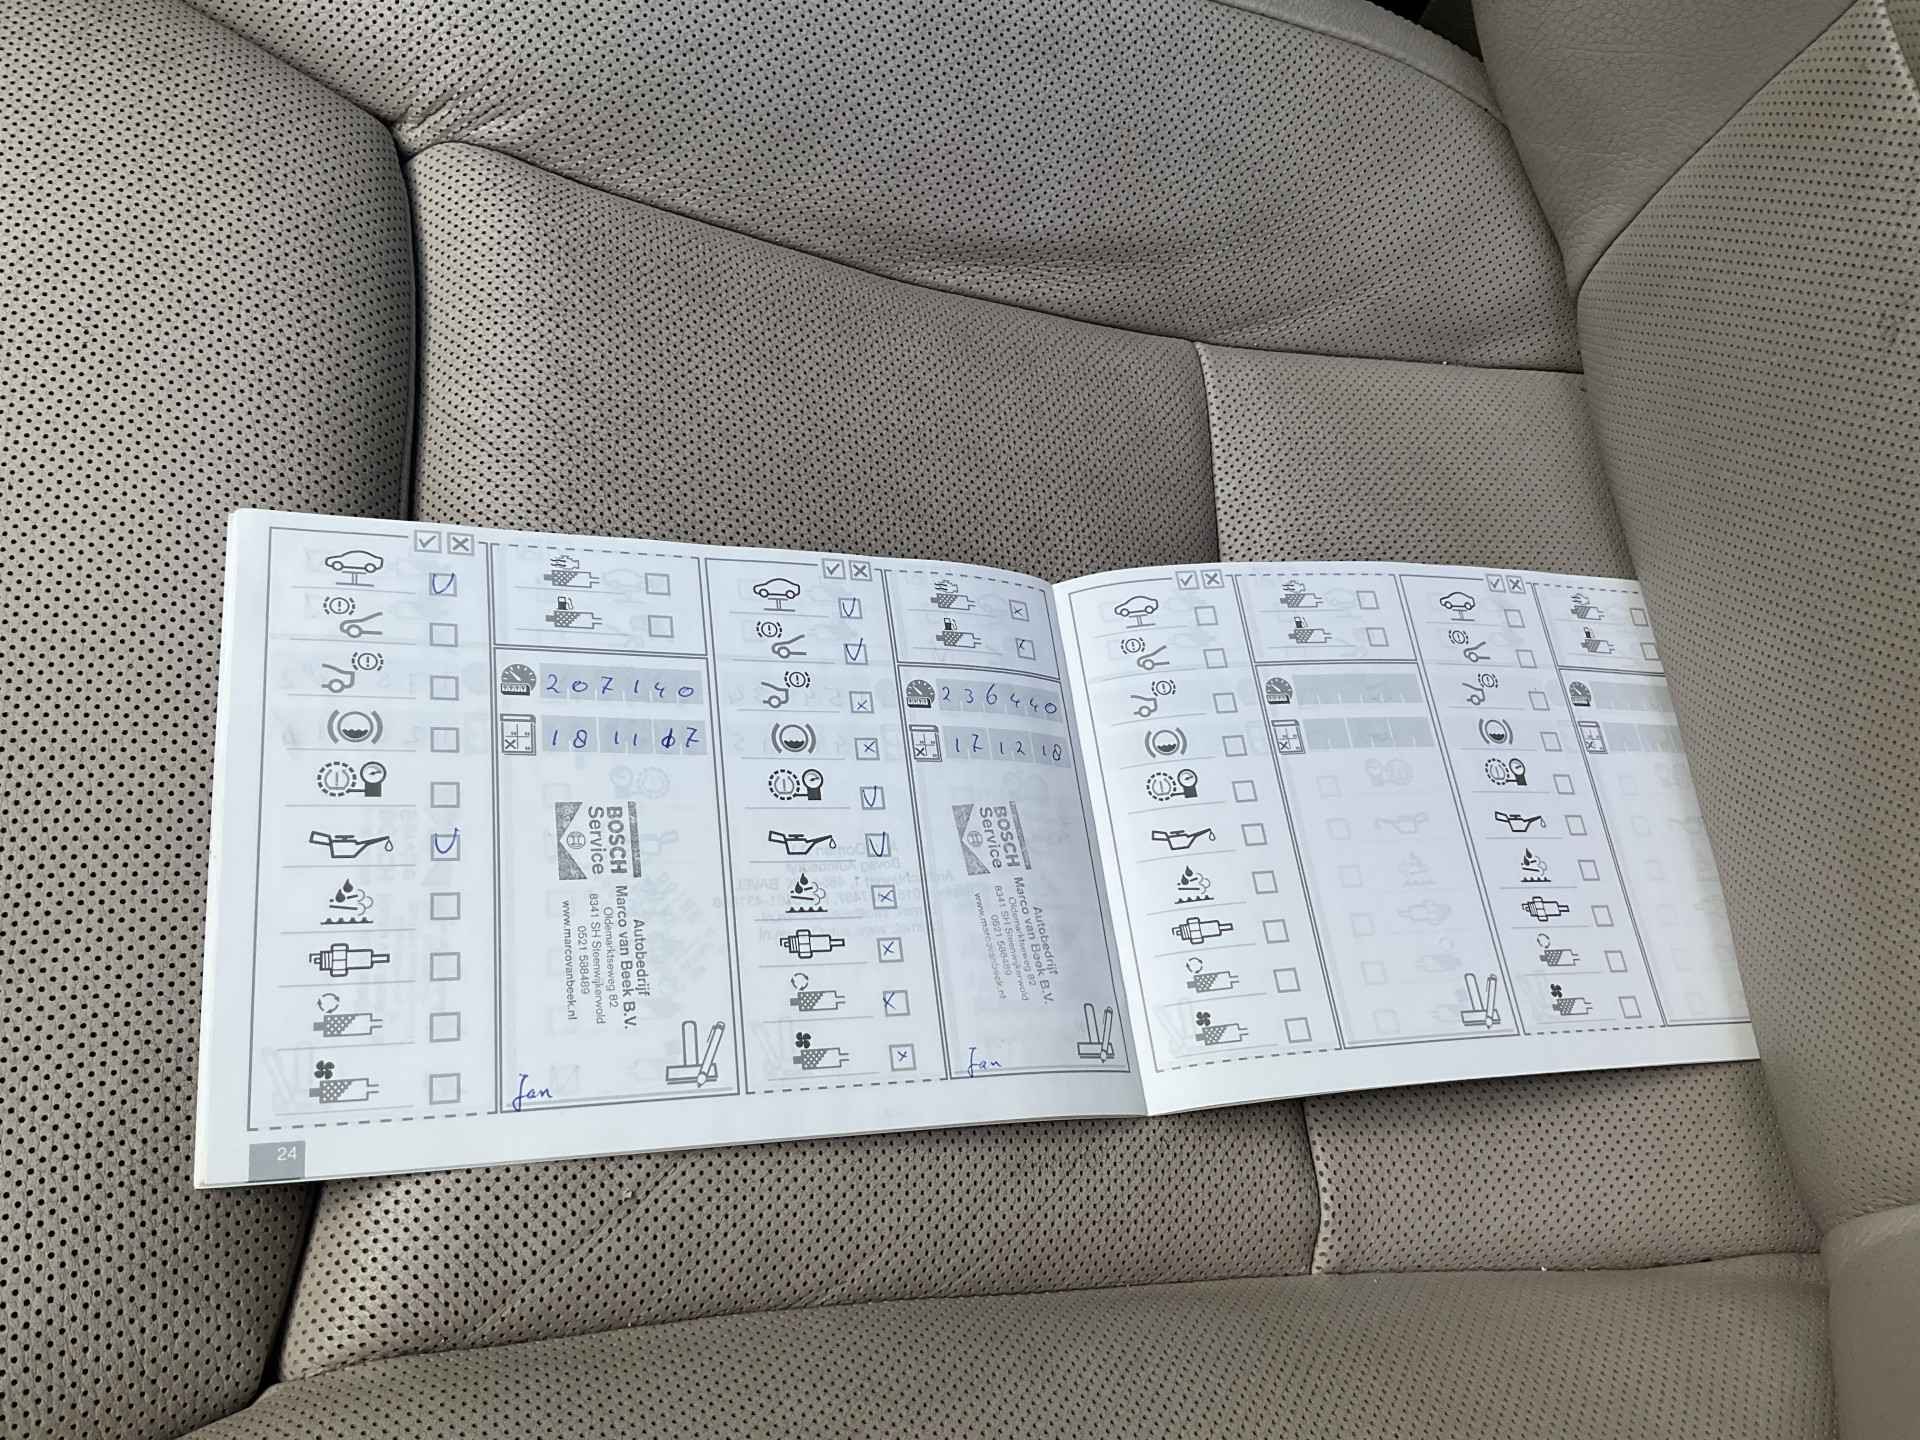 207140
18 11 07
BOSCH
Service
Autobedrijf
Marco van Beek B.V.
Oldemarktseweg 82
8341 SH Steenwijkerwold
0521 588489
www.marcovanbeek.nl
Jan
236440
17 12 18
BOSCH
Service
Autobedrijf
Marco van Beek B.V.
Oldemarktseweg 82
8341 SH Steenwijkerwold
0521 588489
www.marcovanbeek.nl
Jan
24